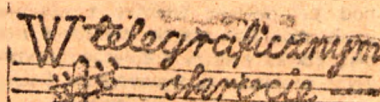 W telegraficznym
skrócie